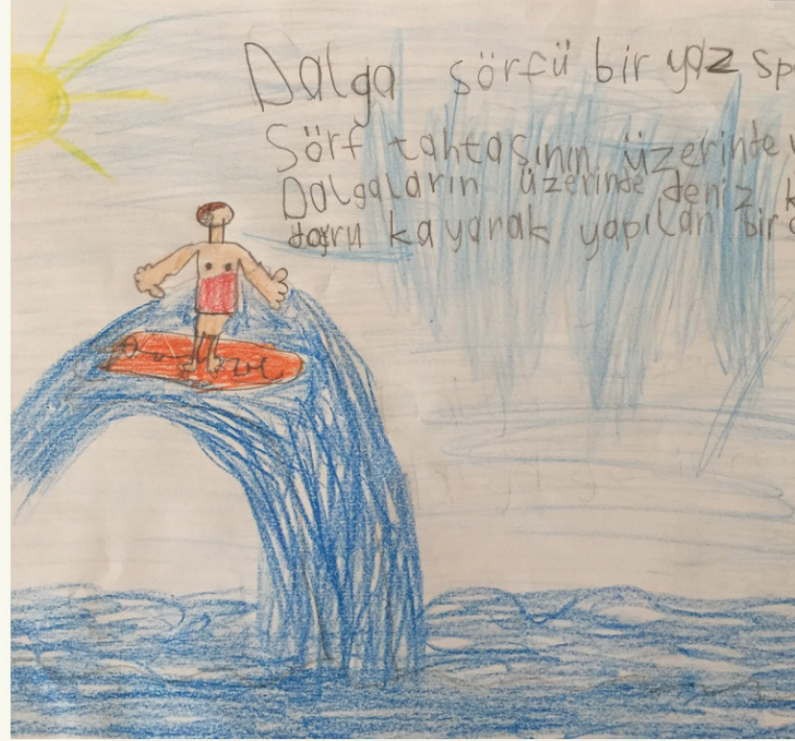 Dalga sörfü bir yaz sp
Sörf tahtasının üzerinde
Dalgaların üzerinde deniz k
doğru kayarak yapılan bir